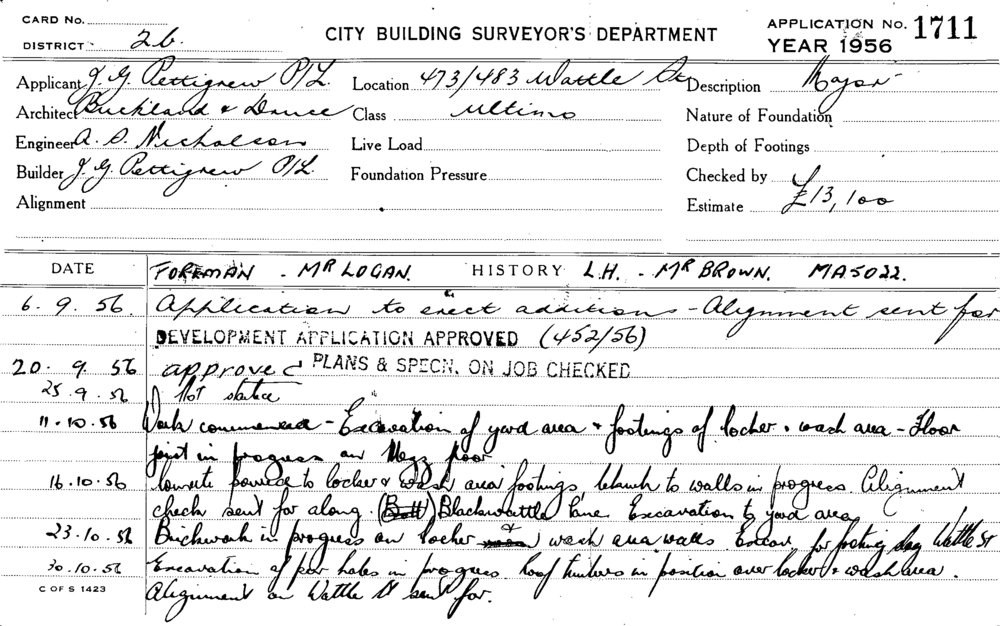 CARD No.
DISTRICT 26.
CITY BUILDING SURVEYOR'S DEPARTMENT
APPLICATION No. 1711
YEAR 1956
Applicant J. G. Pettigrew P/L. Location 473/483 Wattle St Description Major
Architect Buckland & Druce Class Ultimo Nature of Foundation
Engineer A. S. Nicholson Live Load Depth of Footings
Builder J. G. Pettigrew P/L. Foundation Pressure Checked by
Alignment Estimate £13,100
DATE FOREMAN - MR LOGAN. HISTORY L.H. - MR BROWN. MA5022.
6. 9. 56. Application to erect additions - Alignment sent for
DEVELOPMENT APPLICATION APPROVED (452/56)
20. 9. 56 approved PLANS & SPECN. ON JOB CHECKED
25. 9. 56 Not started
11. 10. 56 Work commenced - Excavation of yard area & footings of locker & wash area - Floor
joist in progress on Mezz floor
16. 10. 56 Concrete poured to locker & wash area footings to walls in progress. Alignment
check sent for along Blackwattle Lane Excavation to yard area
23. 10. 56 Brickwork in progress on locker & wash area walls. Excav. for footing Wattle St
30. 10. 56 Excavation of holes in progress. Roof timbers in position over locker & wash area.
Alignment on Wattle St sent for.
C OF S 1423